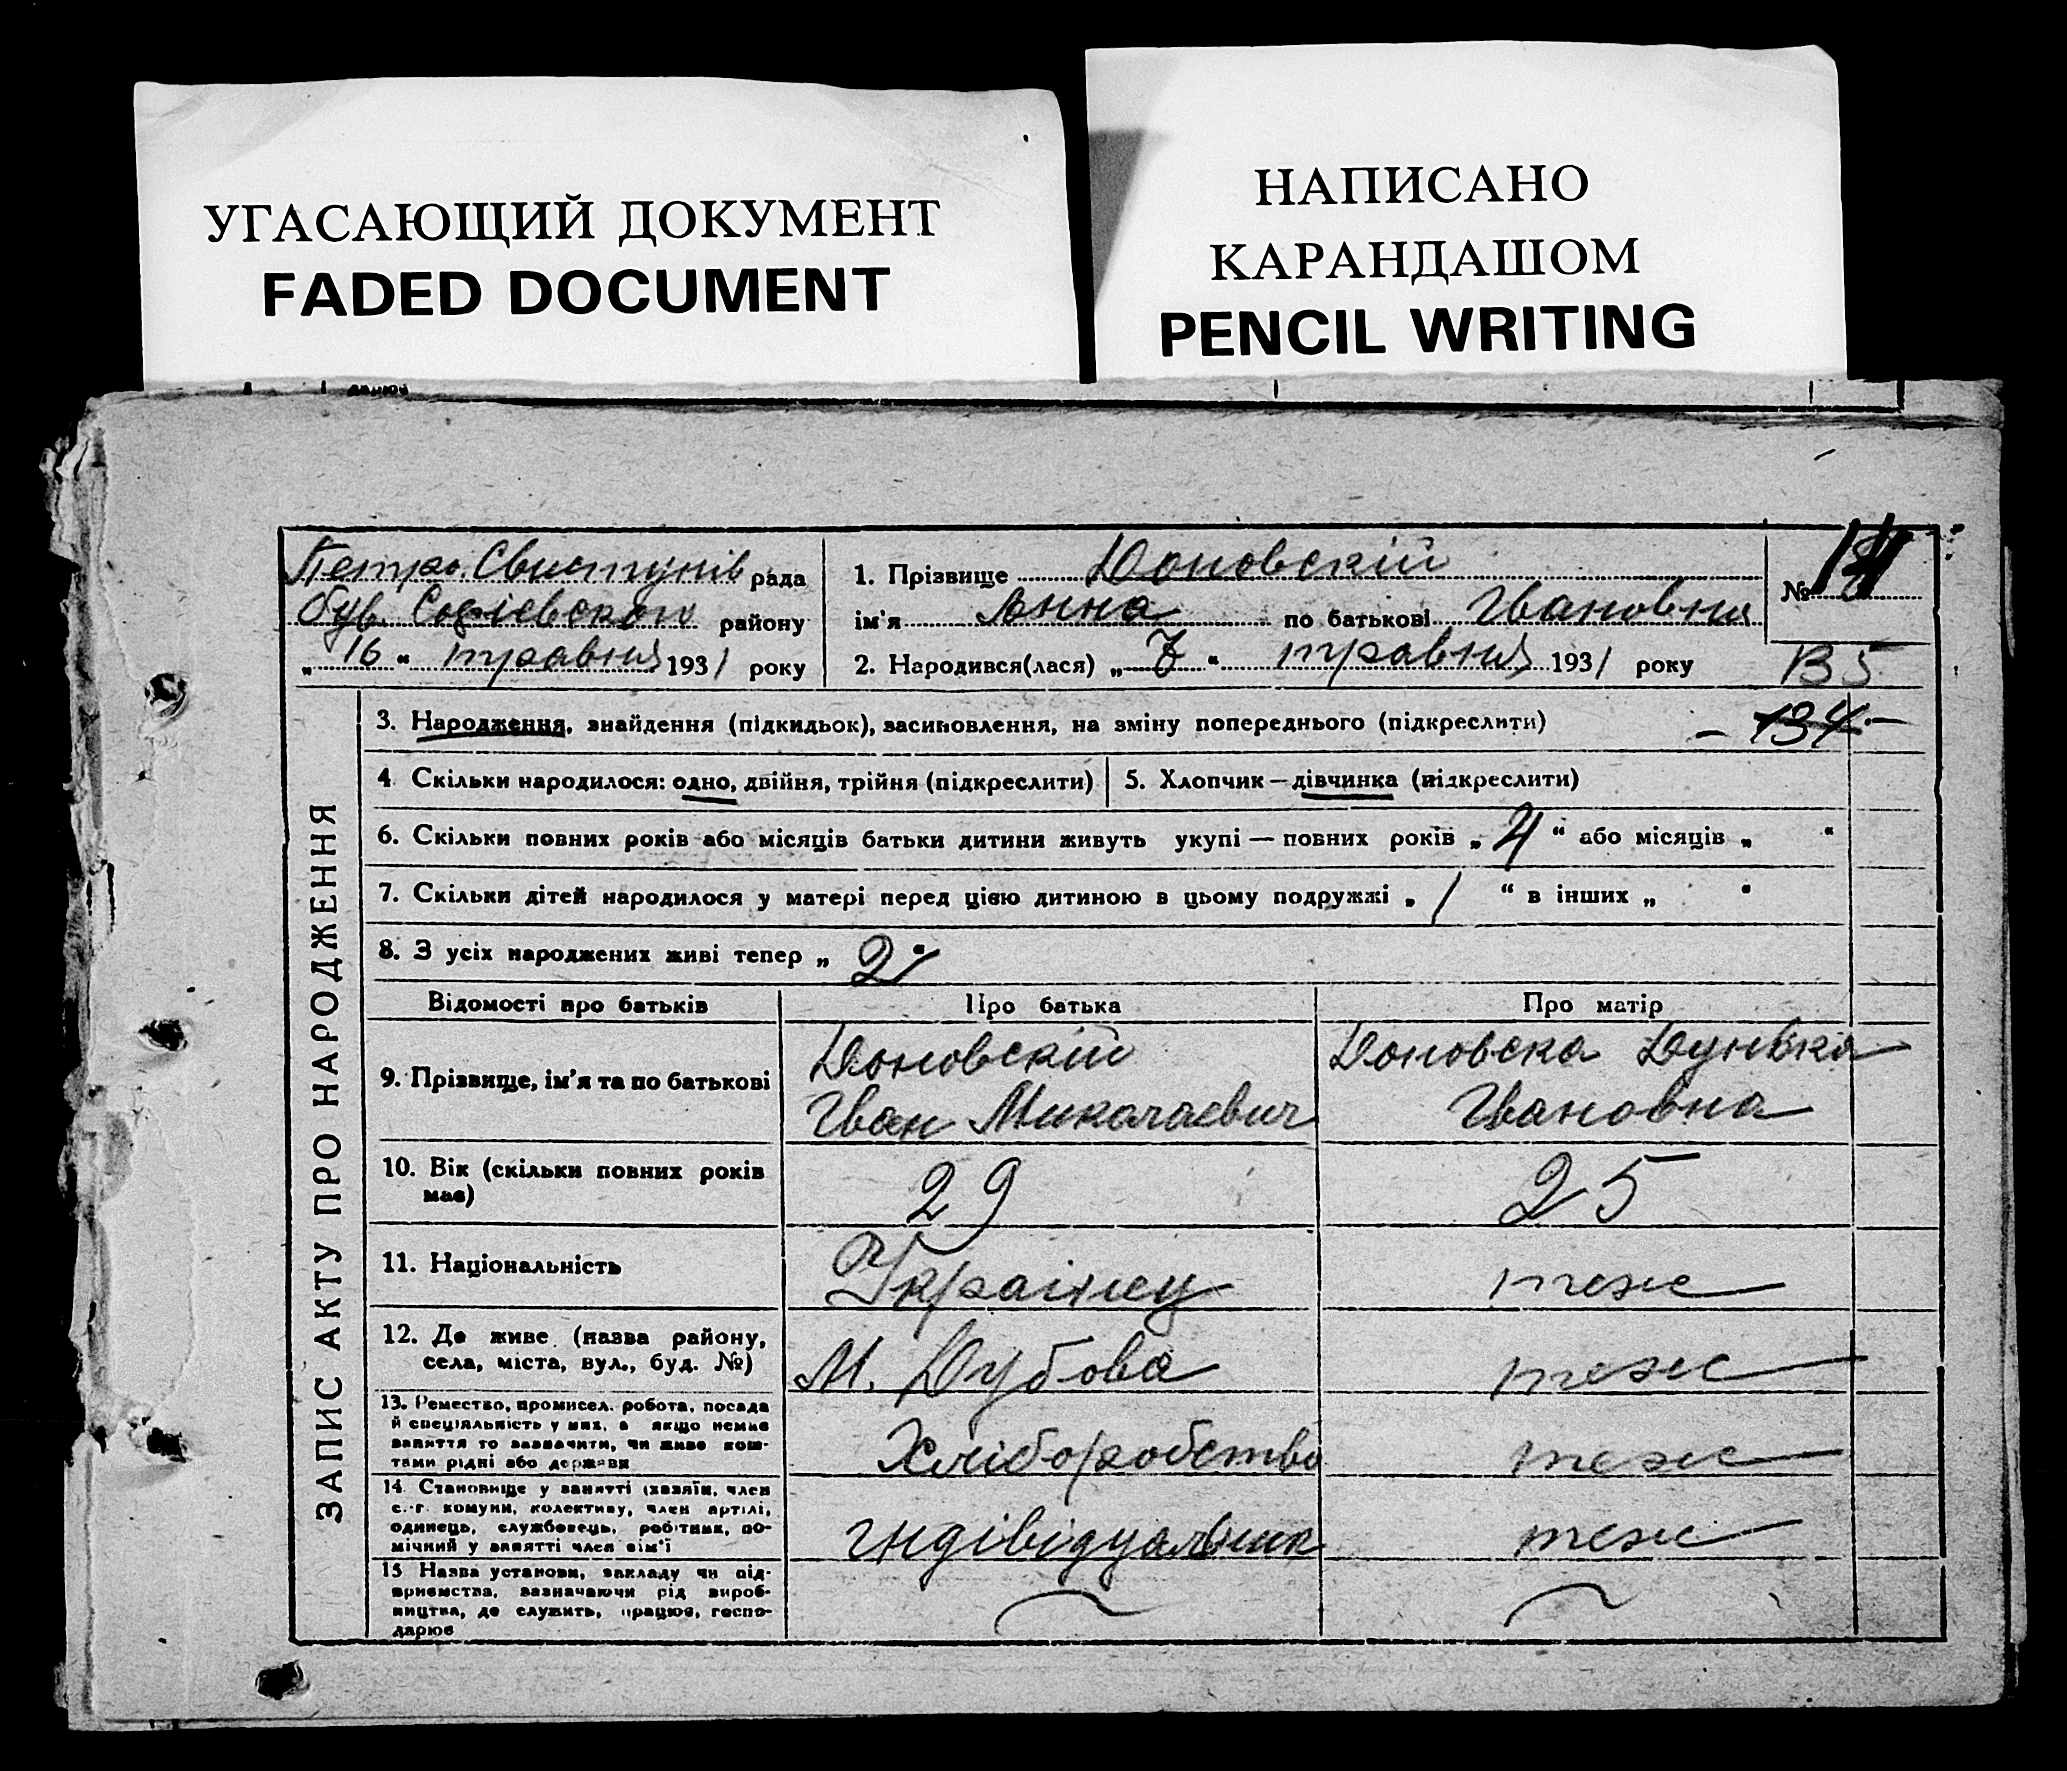 УГАСАЮЩИЙ ДОКУМЕНТ
FADED DOCUMENT
НАПИСАНО
КАРАНДАШОМ
PENCIL WRITING
Петро. Свистунів рада
був. Софієвского району
„ 16 “ травня 1931 року
1. Прізвище Доновскій
ім'я Анна по батькові Івановна
2. Народився(лася) „ 7 “ травня 1931 року
№
В5
- 134 -
ЗАПИС АКТУ ПРО НАРОДЖЕННЯ
3. Народження, знайдення (підкидьок), засиновлення, на зміну попереднього (підкреслити)
4 Скільки народилося: одно, двійня, трійня (підкреслити)
5. Хлопчик — дівчинка (підкреслити)
6. Скільки повних років або місяців батьки дитини живуть укупі — повних років „ 4 “ або місяців „ “
7. Скільки дітей народилося у матері перед цією дитиною в цьому подружжі „ 1 “ в інших „ “
8. З усіх народжених живі тепер „ 2 “
Відомості про батьків Про батька Про матір
9. Прізвище, ім'я та по батькові
Доновскій
Іван Миколаевич
Доновска Дунька
Івановна
10. Вік (скільки повних років
має)
29
25
11. Національність
Українец
теж
12. Де живе (назва району,
села, міста, вул., буд. №)
М. Дубова
теж
13. Ремество, промисел. робота, посада
й спеціяльність у них, а якщо немає
заняття то зазначити, чи живе кош-
тами рідні або держави
Хліборобство
теж
14. Становище у занятті (хазяїн, член
с.-г. комуни, колективу, член артілі,
одинець, службовець, робітник, по-
мічний у занятті член сім'ї
індівідуальник
теж
15 Назва установи, закладу чи під-
приємства, зазначаючи рід вироб-
ництва, де служить, працює, госпо-
дарює